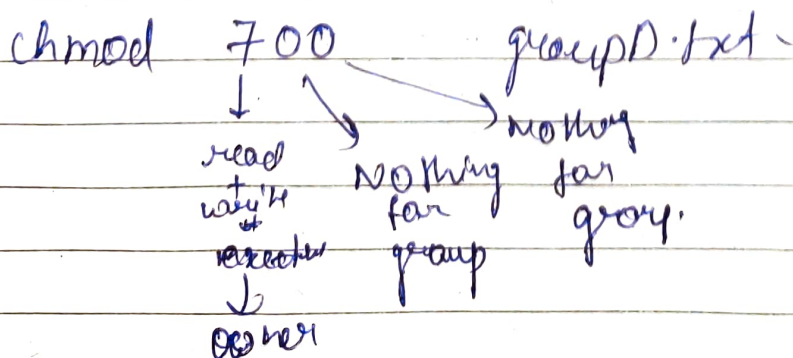 chmod 700 groupD.txt
read
+
write
+
execute
owner
Nothing
for
group
Nothing
for
group.